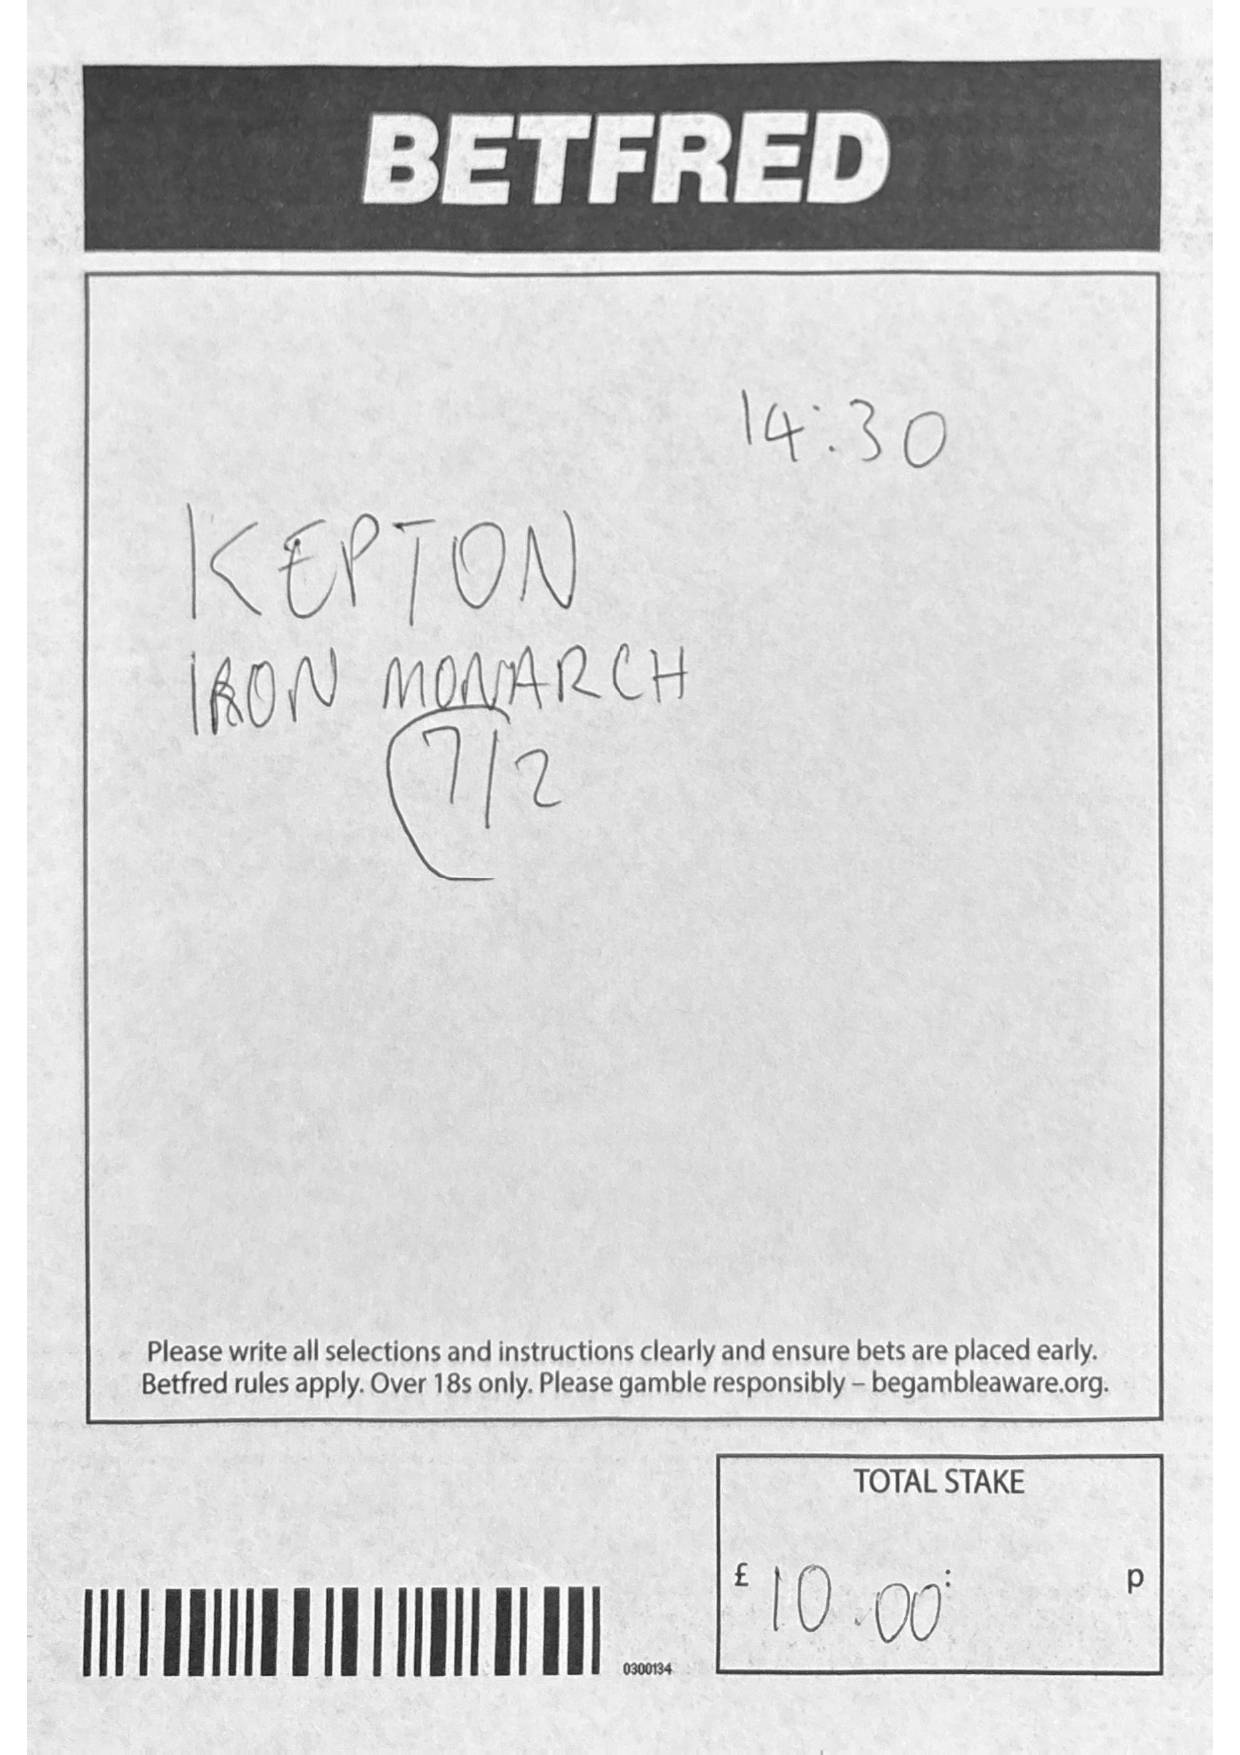 BETFRED
14:30
KEPTON
IRON MONARCH
7/2
Please write all selections and instructions clearly and ensure bets are placed early.
Betfred rules apply. Over 18s only. Please gamble responsibly – begambleaware.org.
TOTAL STAKE
£ 10.00 : p
0300134